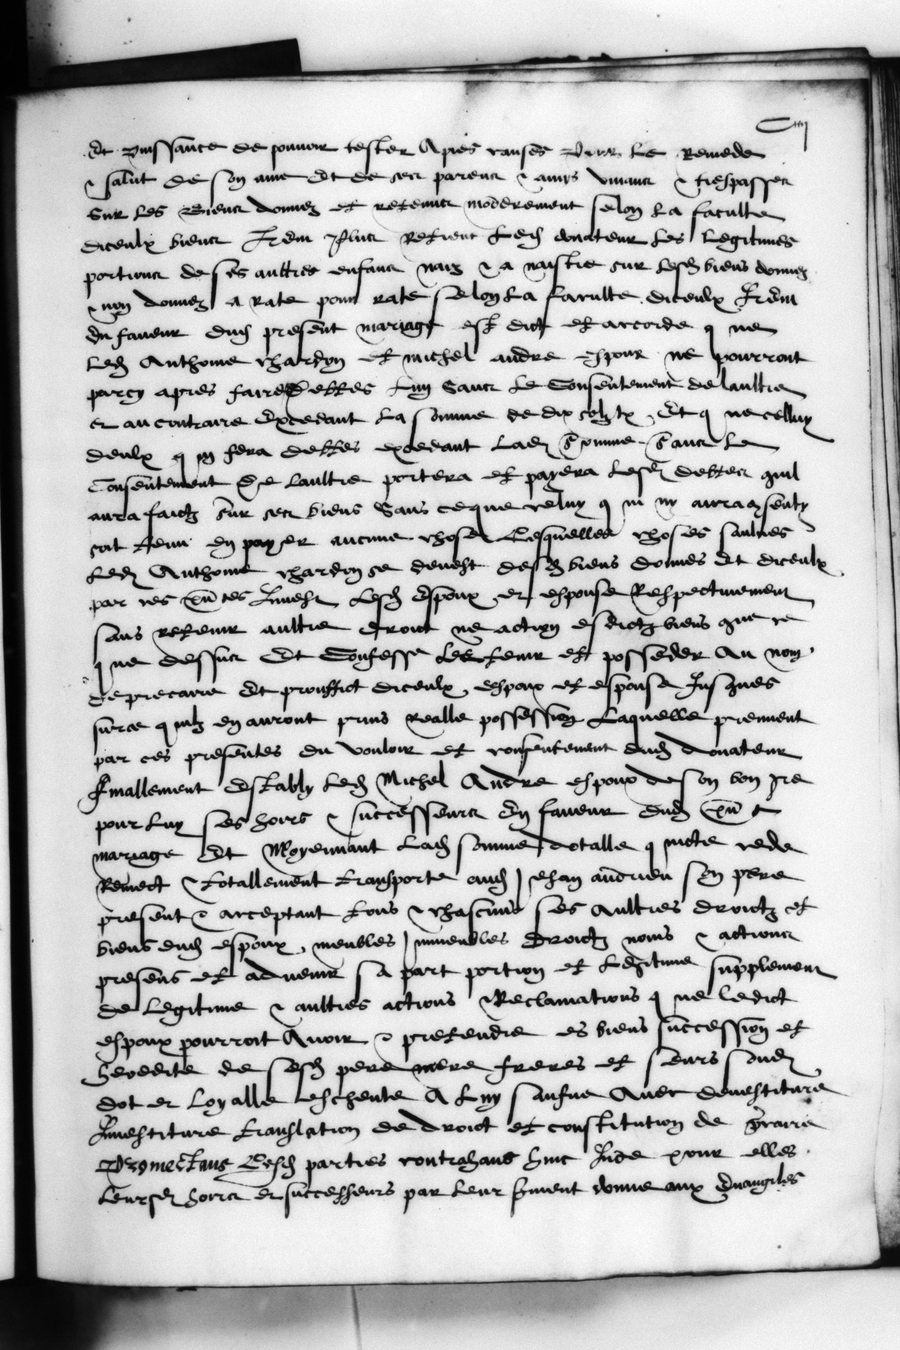 Ciiij
Et puissance de pouvoir tester Apres causes pour le Remede
& salut de son ame Et de ses parens & amys vivans & trespasses
Sur les Biens donnez et retenuz moderement selon la faculte
diceulx biens Item plus Retient led donateur les legitimes
portions de ses aultres enfans naiz & a naistre sur lesd biens donnez
& non donnez a rate pour rate selon la faculte diceulx Item
En faveur dud present mariage est dict et accorde q ne
led Anthoine chardon et michel andre espoux ne pourront
par cy apres faire debtes lun Sans le Consentement de laultre
et au contraire Excedant la somme de dix solz tz Et q ne celluy
deulx q en fera debtes excedant lad somme sans le
Consentement De laultre portera et payera lesd debtes quil
aura faictz sur ses biens Sans ce que celuy q ni aura consenty
soit tenu en payer aucune chose Lesquelles choses saulves
Led Anthoine chardon se devest desd biens donnes Et diceulx
par ces Investist Lesd Espoux et espouse Respectivement
sans retenir aultre droict ne action esdictz biens que ce
q ne dessus Et Confesse les tenir et posseder Au nom
de precaire Et prouffict diceulx espoux et espouse Jusques
surce quilz en auront prins realle possession Laquelle prennent
par ces presentes du vouloir et consentement dud donateur
Finallement Estably led Michel Andre espoux de son bon gre
pour luy ses hoirs & successeurs En faveur dud
mariage Et Moyennant lad somme dotalle q cede
Remect & totallement transporte aud Jehan andrieu son pere
present & acceptant tous & chascuns ses Aultres droictz et
biens dud espoux meubles Jmmeubles Droictz noms & actions
presens et advenir sa part portion et legitime supplement
de legitime & aultres actions & Reclamations q ne ledict
espoux pourroit Avoir & pretendre es biens succession et
heredite de sesd pere mere freres et seurs saufz
dot et loyalle escheute A luy saufve Avec devestiture
Investiture translation de droict et constitution de
Promectans Lesd parties contrahans hinc Inde pour elles
leursd hoirs et successeurs par leur serment donne aux Evangiles